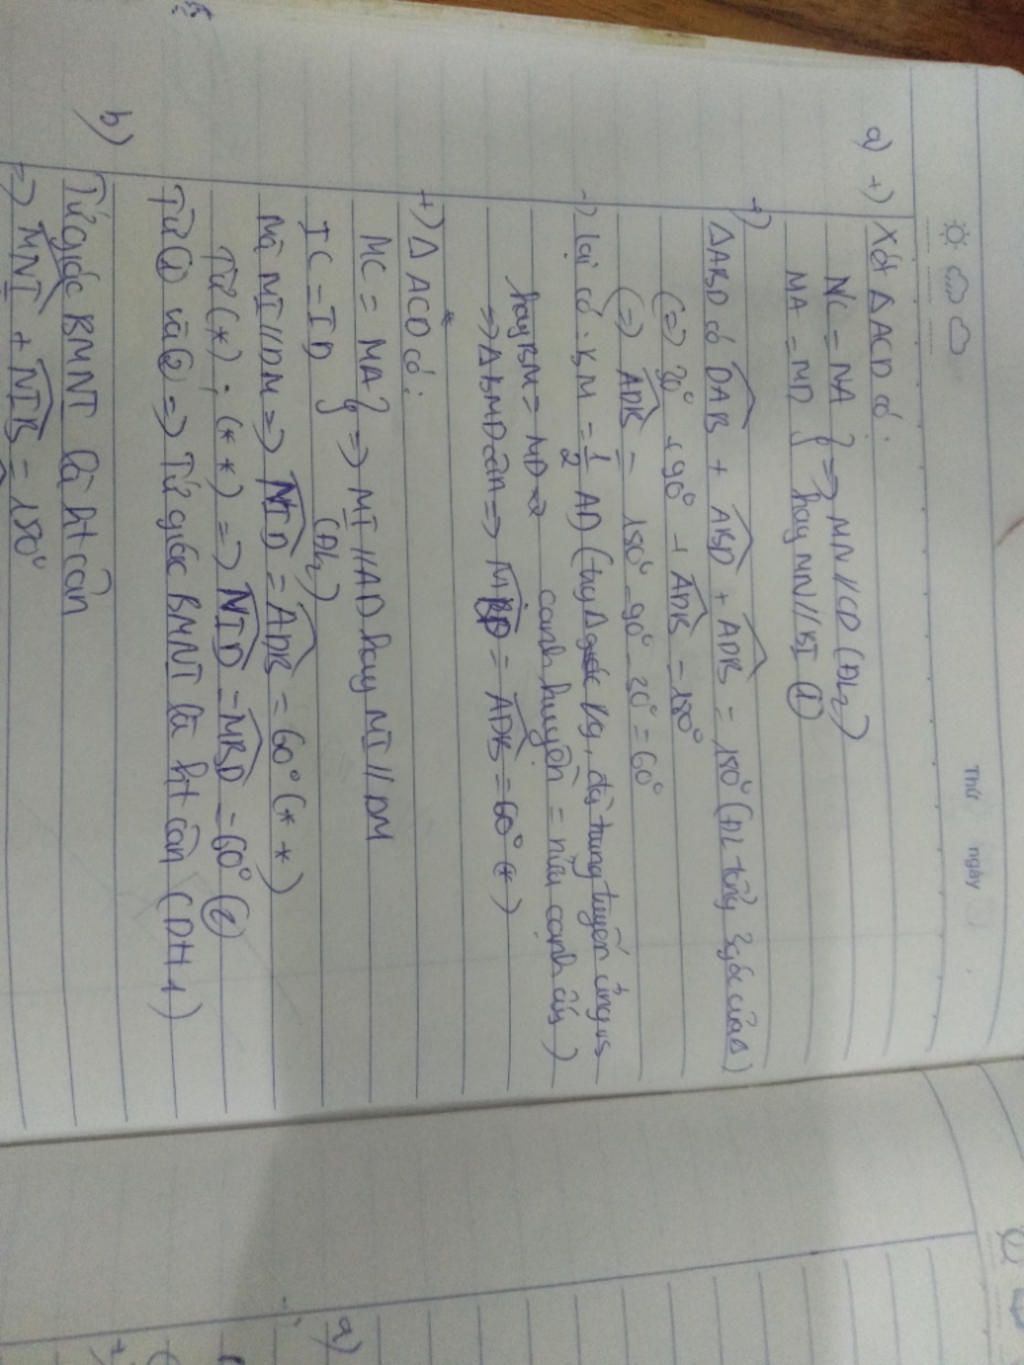 Thứ ngày
a) +) Xét ΔACD có:
NC = NA } => MN//CD (ĐL2)
MA = MD } hay MN//BI ①
+) ΔABD có DAB + ABD + ADB = 180° (ĐL tổng 3 góc của Δ)
(=) 30° + 90° + ADB = 180°
(=) ADB = 180° - 90° - 30° = 60°
-) Lại có: BM = 1/2 AD (trg Δ vg, đg trung tuyến ứng vs
cạnh huyền = nửa cạnh ấy)
hay BM = MD
=> ΔBMD cân => MBD = ADB = 60° (*)
+) ΔACD có:
MC = MA } => MI//AD hay MI//DM
IC = ID (ĐL2)
Mà NI//DM => NID = ADB = 60° (**)
Từ (*); (**) => NID = MBD = 60° ②
Từ ① và ② => Tứ giác BMNI là ht cân (DH1)
b)
Tứ giác BMNI là ht cân
=> MNI + NIB = 180°
a)